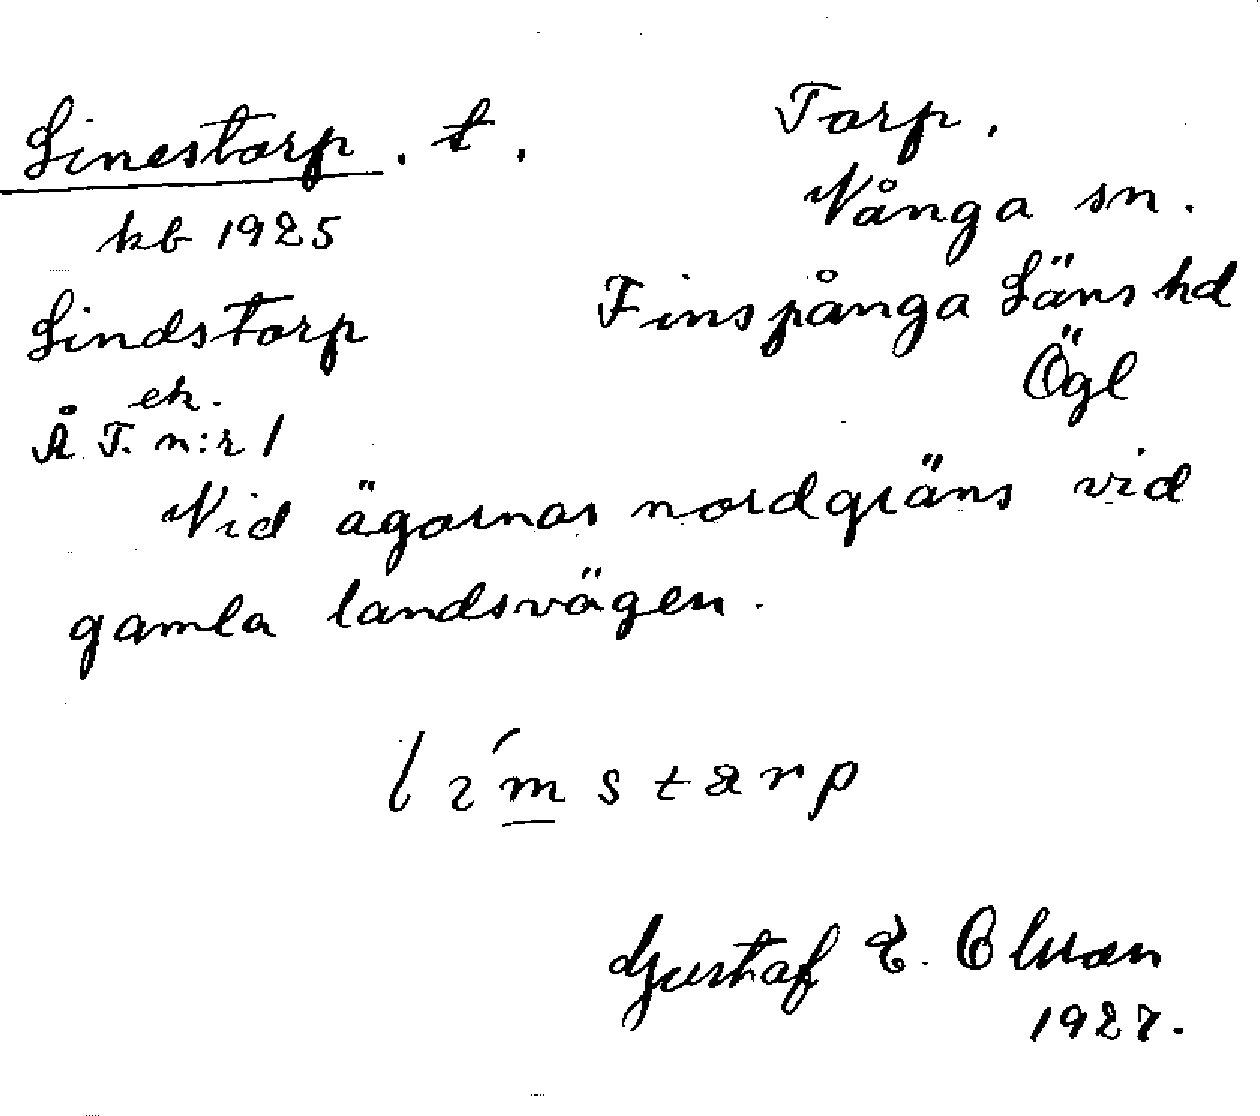 Linestorp. t.
kb 1925
Lindstorp
ek.
Å T. n:r 1
Torp.
Vånga sn.
Finspånga Läns hd
Ögl
Vid ägornas nordgräns vid
gamla landsvägen.
Gustaf E. Olsson
1927.